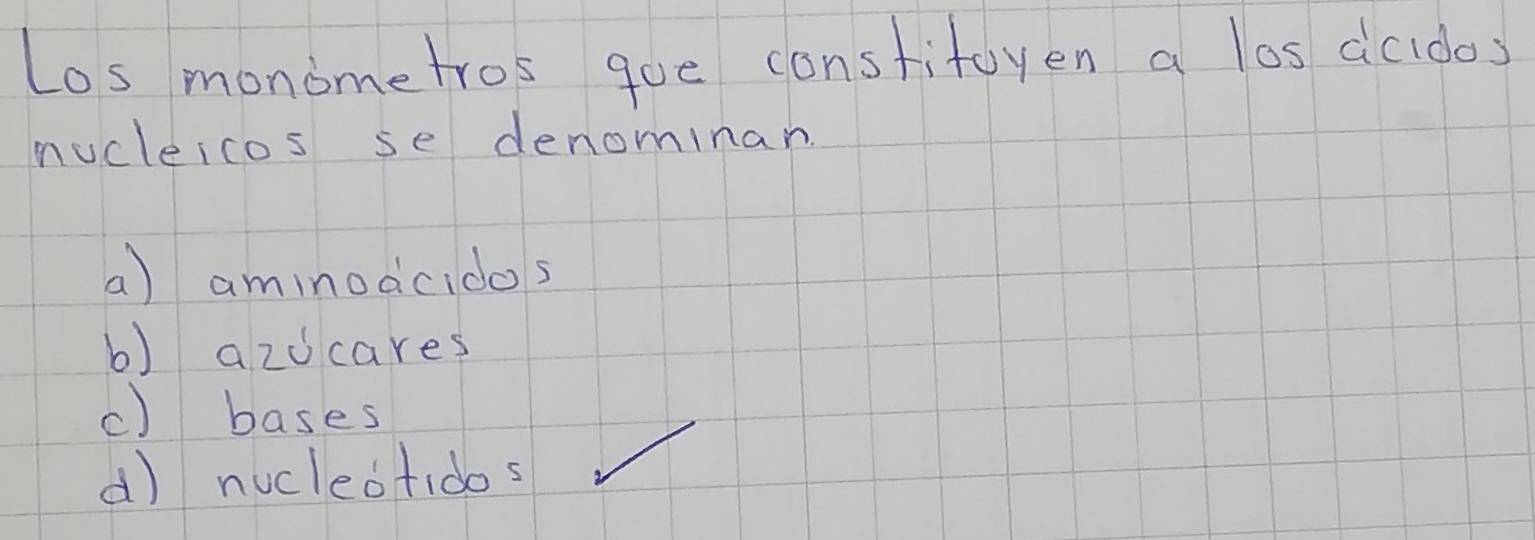 Los monómetros que constituyen a los ácidos
nucleicos se denominan.
a) aminoácidos
b) azúcares
c) bases
d) nucleótidos ✓